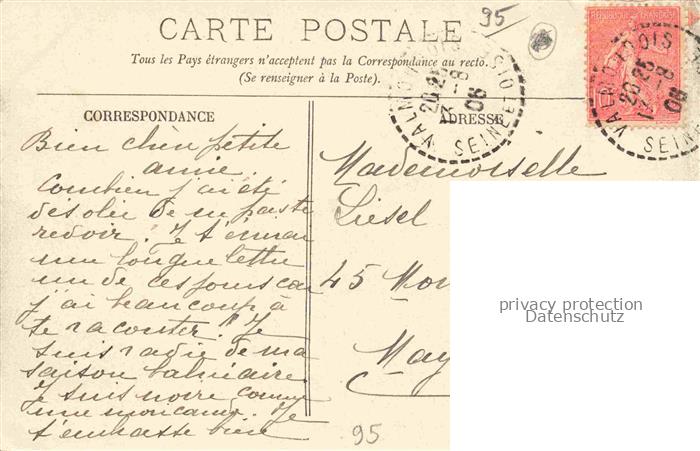 95
CARTE POSTALE
Tous les Pays étrangers n'acceptent pas la Correspondance au recto.
(Se renseigner à la Poste).
RÉPUBLIQUE FRANÇAISE
VALMONDOIS
20 25
8
06
SEINE ET OISE
CORRESPONDANCE
ADRESSE
Bien chère petite
amie.
Combien j'ai été
désolée de ne pas te
revoir. Je t'enverrai
une longue lettre
un de ces jours car
j'ai beaucoup à
te raconter. Je
suis ravie de ma
saison balnéaire.
Je suis noire comme
une moricaude. Je
t'embrasse bien
Mademoiselle
Liesel
45
May
95
privacy protection
Datenschutz